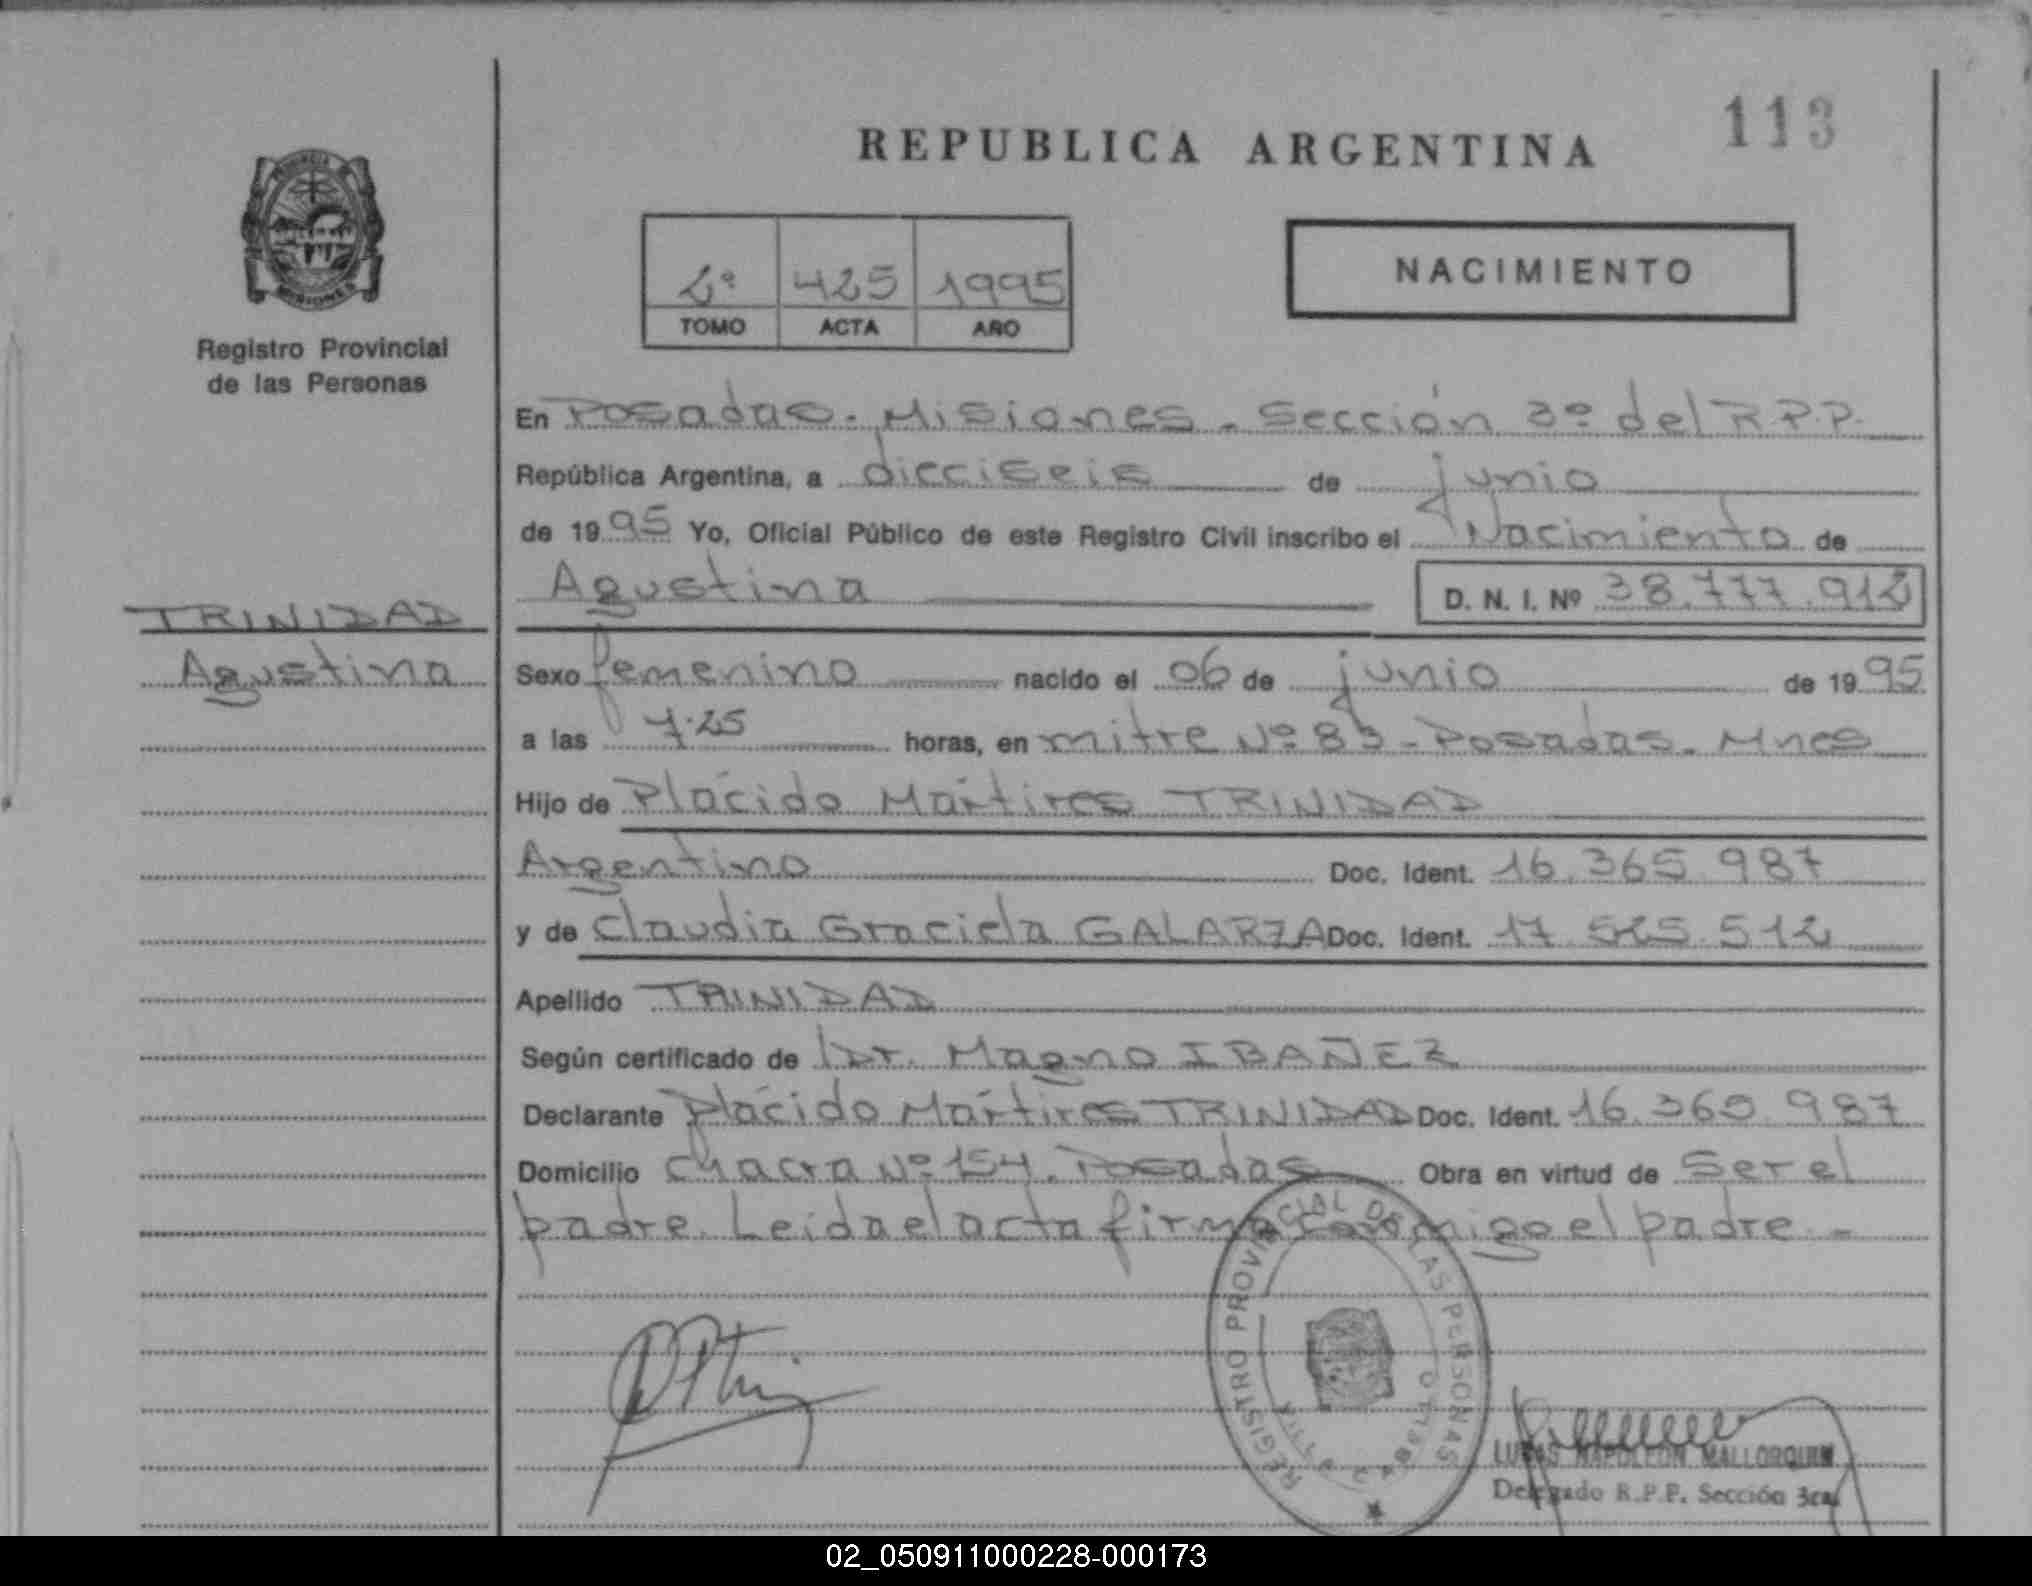 113
REPUBLICA ARGENTINA
PROVINCIA DE MISIONES
Registro Provincial
de las Personas
2º 425 1995
TOMO ACTA AÑO
NACIMIENTO
En Posadas - Misiones - Sección 3º del R.P.P.
República Argentina, a dieciseis de junio
de 1995 Yo, Oficial Público de este Registro Civil inscribo el Nacimiento de
Agustina D. N. I. Nº 38.777.912
TRINIDAD
Agustina
Sexo femenino nacido el 06 de junio de 1995
a las 7.25 horas, en mitre Nº 83 - Posadas - Mnes
Hijo de Plácido Mártires TRINIDAD
Argentino Doc. Ident. 16.365.987
y de Claudia Graciela GALARZA Doc. Ident. 17.525.512
Apellido TRINIDAD
Según certificado de Dr. Magno IBAÑEZ
Declarante Plácido Mártires TRINIDAD Doc. Ident. 16.365.987
Domicilio chacra Nº 154. Posadas Obra en virtud de Ser el
padre. Leida el acta firma conmigo el padre. -
REGISTRO PROVINCIAL DE LAS PERSONAS
LUCAS NAPOLEON MALLORQUIN
Delegado R.P.P. Sección 3ra.
02_050911000228-000173